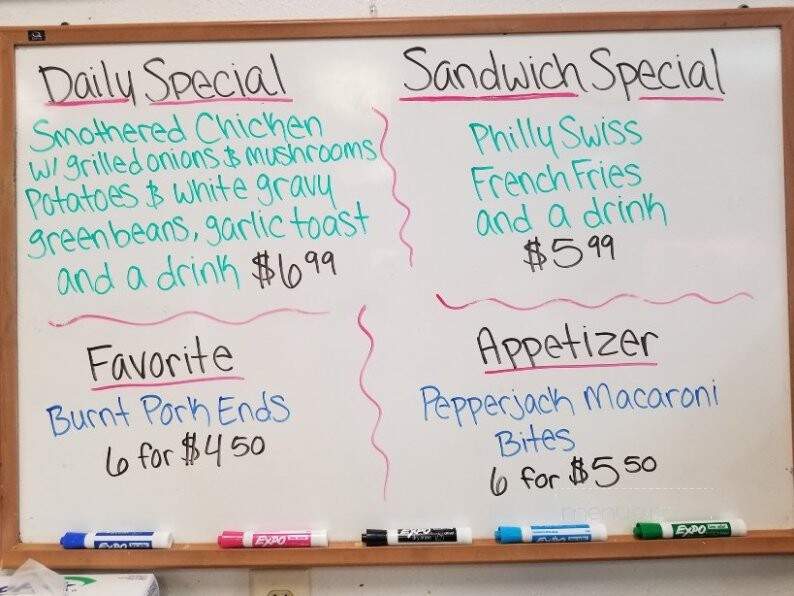 Daily Special
Smothered Chicken
w/ grilled onions & mushrooms
Potatoes & white gravy
greenbeans, garlic toast
and a drink $6.99
Sandwich Special
Philly Swiss
French Fries
and a drink
$5.99
Favorite
Burnt Pork Ends
6 for $4.50
Appetizer
Pepperjack Macaroni
Bites
6 for $5.50
EXPO
EXPO
EXPO
EXPO